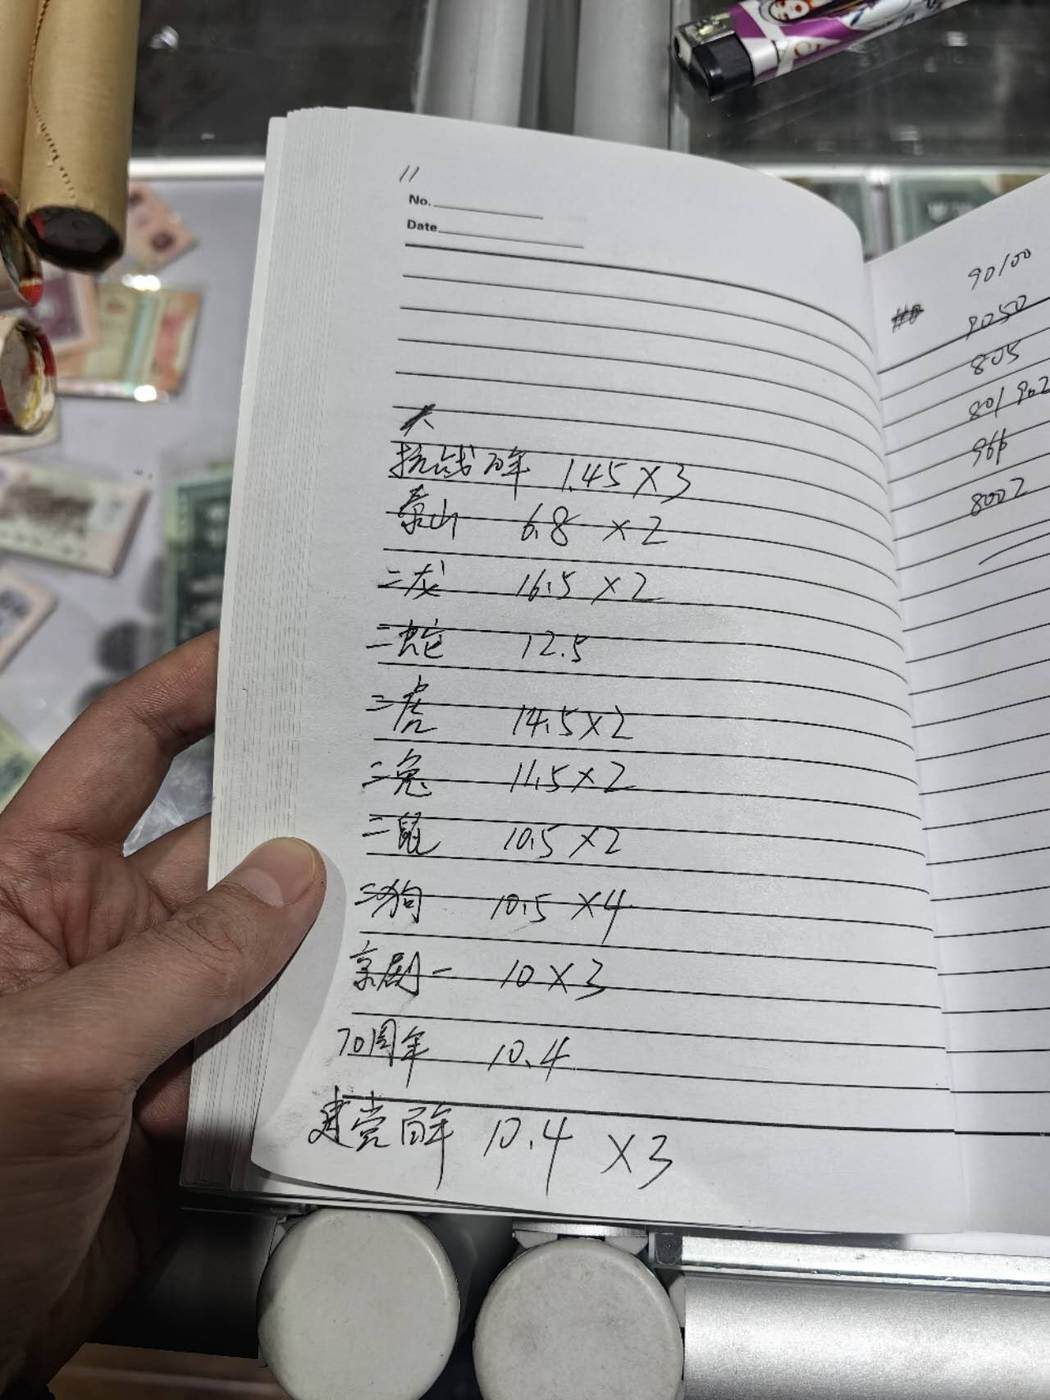 11
No.
Date
抗战百年 1.45×3
泰山 6.8 ×2
二龙 16.5 ×2
二蛇 12.5
二虎 14.5×2
二兔 11.5×2
二鼠 10.5×2
二狗 10.5 ×4
京剧一 10×3
70周年 10.4
建党百年 10.4 ×3
90100
9050
805
801 902
966
8002